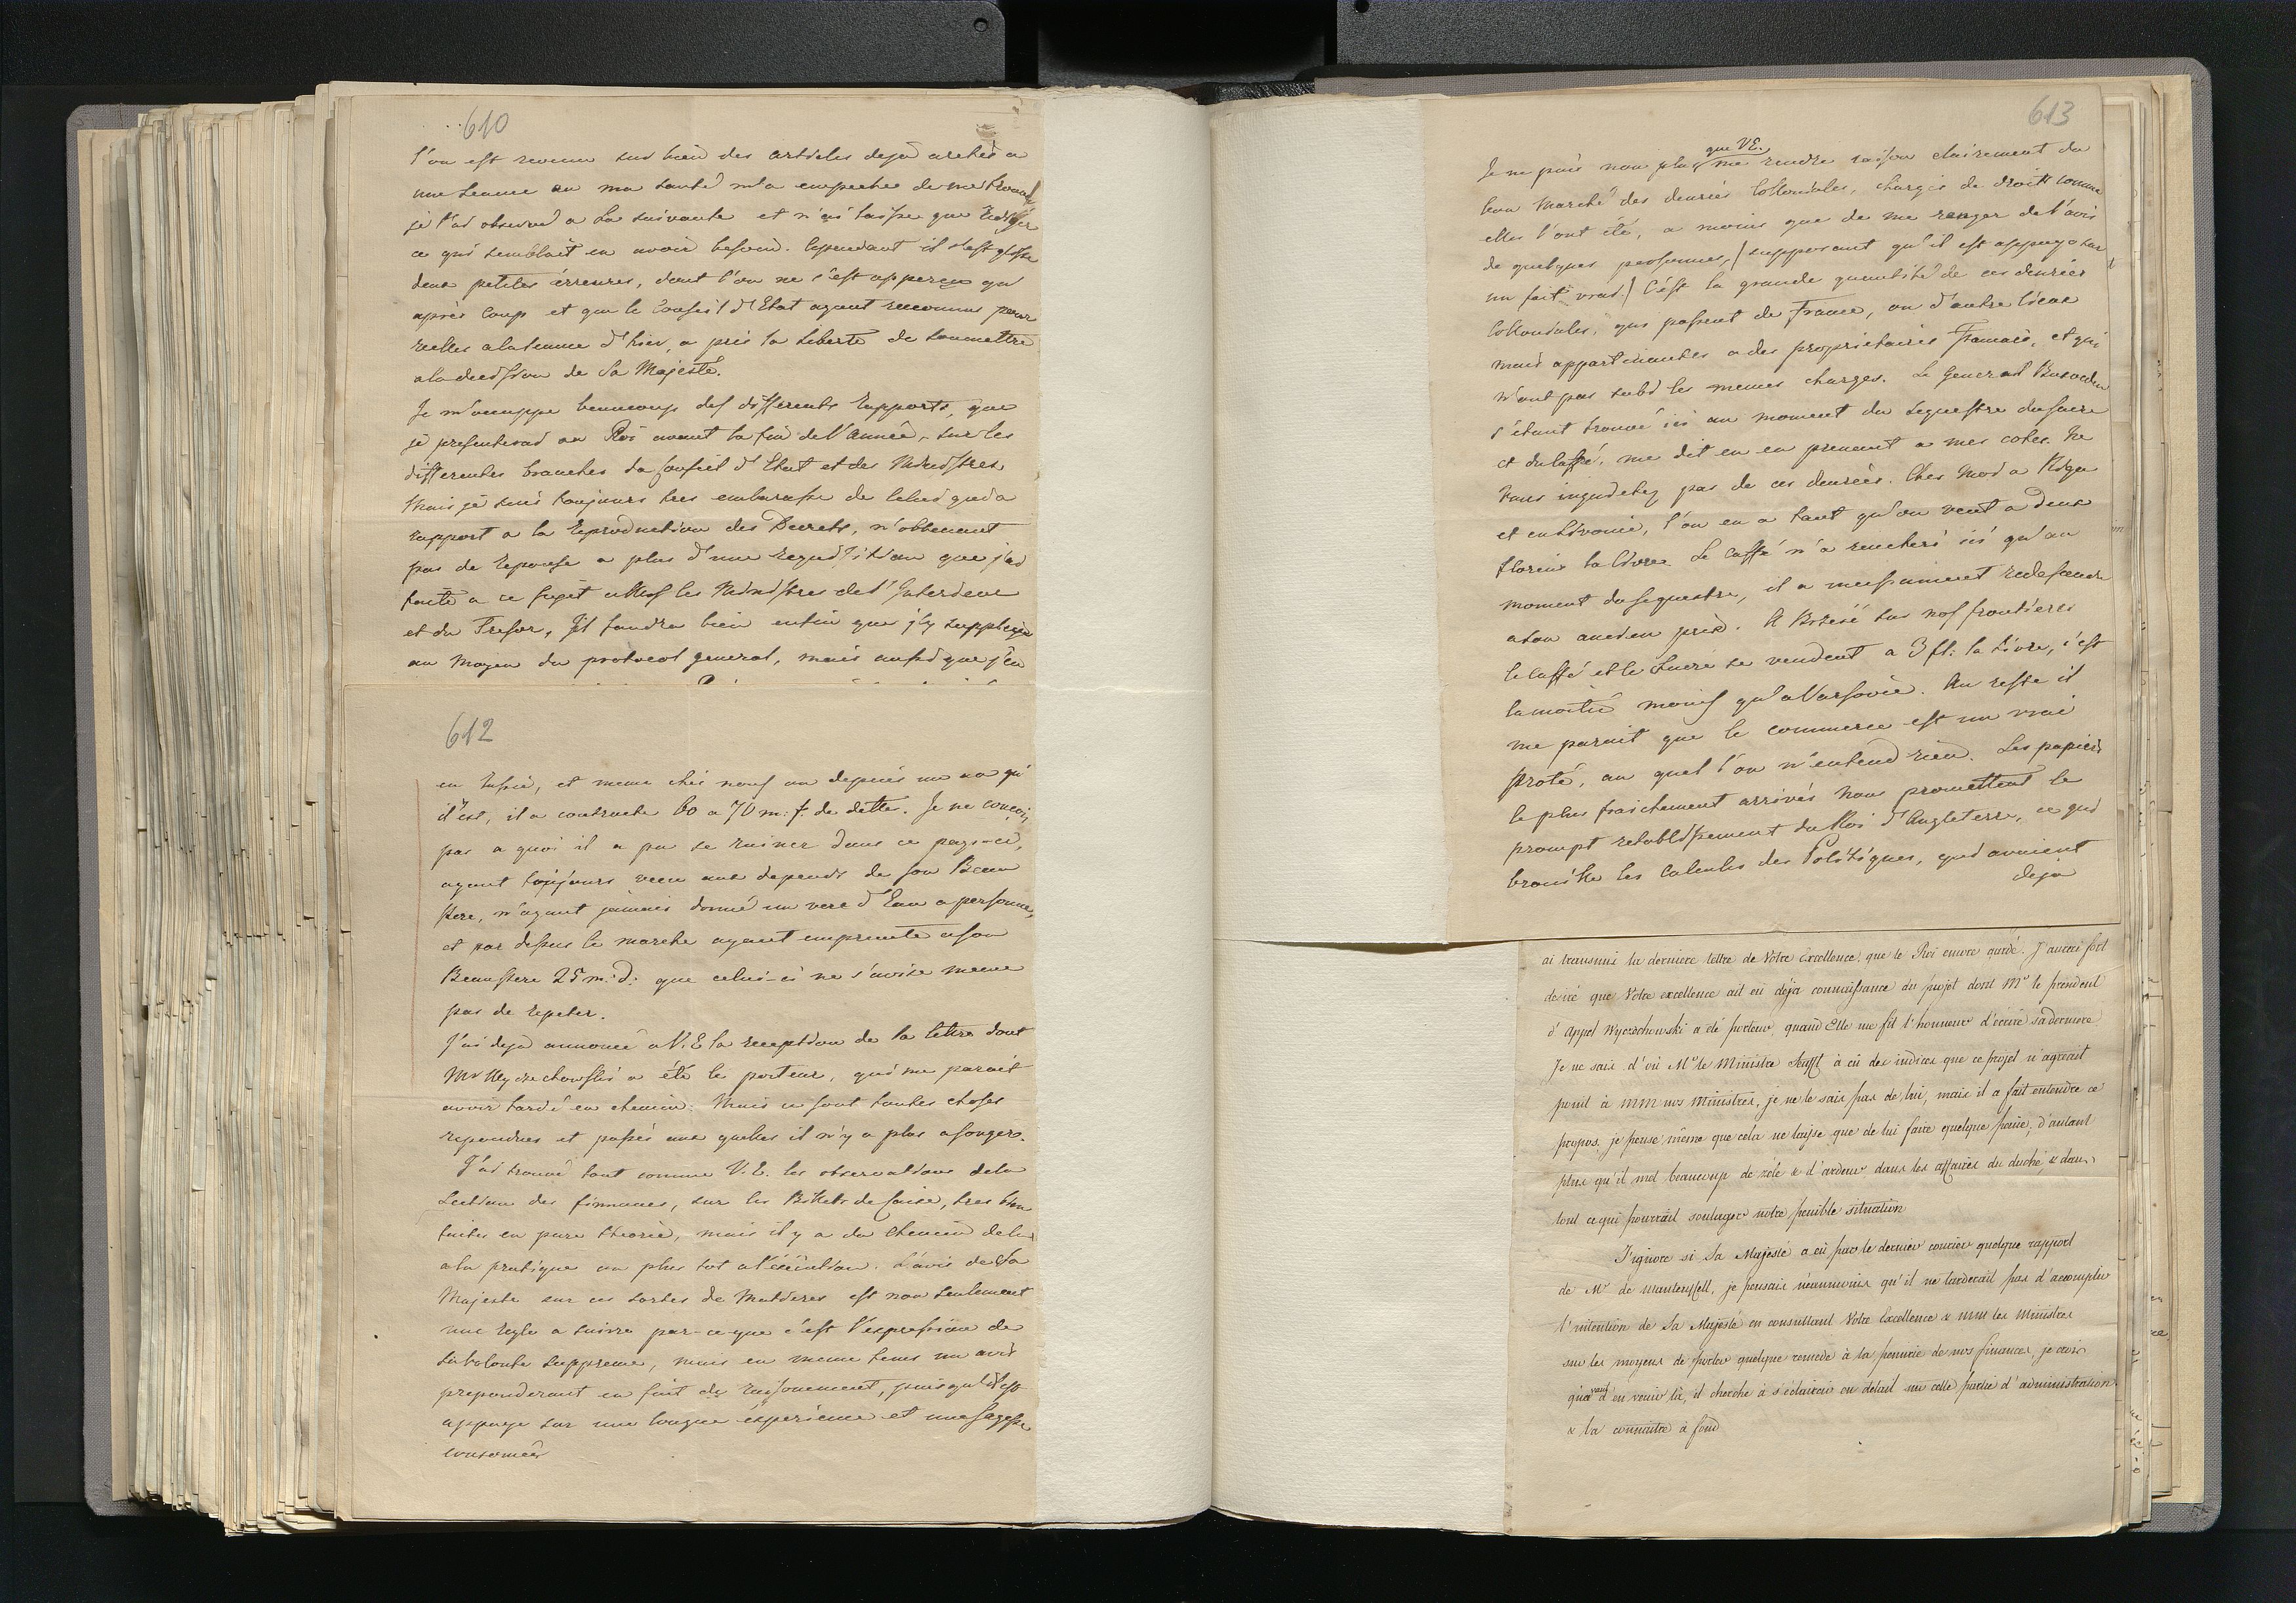 610
l'on est revenu sur bien des articles deja aretés a
une seance ou ma santé m'a empeché de me trouver
je l'ai observé a la suivante et n'ai laissé que rediger
ce qui semblait en avoir besoin. Cependant il s'est glissé
deux petites érreures, dont l'on ne s'est apperçu qu
après coup et que le Conseil d'Etat ayant reconnus pour
reelles a la seance d'hier, a pris la liberté de soumettre
a la decission de Sa Majesté.
Je m'occuppe beaucoup des differents rapports, que
je presenterai au Roi avant la fin de l'année, sur les
differentes branches du Conseil d'Etat et des Ministres.
Mais je suis toujours tres embarassé de celui qui a
rapport a la reproduction des Decrets, n'obtenant
pas de reponse a plus d'une requisition que j'ai
faite a ce sujet a Mess les Ministres de l'Interieur
et du Tresor, Il faudra bien enfin que j'y supplée
au moyen du protocol general, mais aussi que j'en
612
en Russie, et meme chés nous ou depuis un an qu
il est, il a contracté 60 a 70 m: f. de dette. Je ne conçois
pas a quoi il a pu se ruiner dans ce pays-ci,
ayant toujours vecu aux depends de son Beau
Pere, n'ayant jamais donné un vere d'Eau a personne,
et par dessus le marché ayant emprunté a son
Beaupere 25 m: d: que celui-ci ne s'avise meme
pas de repeter.
J'ai deja annoncé a V. E la reception de la lettre dont
Mr Wyczechowski a été le porteur, qui me parait
avoir tardé en chemin: Mais ce sont toutes choses
repondues et passés aux quelles il n'y a plus a songer.
J'ai trouvé tout comme V. E. les observations de la
Section des finances, sur les Billets de Caisse, tres bien
faites en pure theorie, mais il y a du chemin de la
a la pratique ou plus tot a l'éxécution. L'avis de Sa
Majesté sur ces sortes de Matieres est non seulement
une regle a suivre par-ce-que c'est l'expression de
sa volonté suppreme, mais en meme tems un avis
preponderant en fait de raisonnement, puisqu'il est
appuyé sur une longue éxperience et une sagesse
consomée
613
que VE.
Je ne puis non plus me rendre raison clairement du
bon Marché des denrées Colloniales, chargés de droits comme
elles l'ont été, a moins que de me ranger de l'avis
de quelques personnes, / supposant qu'il est appuyé sur
un fait vrai. / C'est la grande quantité de ces denrées
Colloniales, qui passent de France, ou d'autre lieux
mais appartenantes a des proprietaires Francais, et qui
n'ont pas subi les memes charges. Le General Buxovden
s'étant trouvé ici au moment du sequestre du sucre
et du Caffé, me dit en en prenant a mes cotés. Ne
vous inquietez pas de ces denrées. Ches Moi a Riga
et en Livonie, l'on en a tant qu'on veut a deux
florins la Livre. Le Caffé n'a rencheri ici qu'au
moment du sequestre, il a incessament redescendu
a son ancien prix. A Brzesć sur nos frontieres
le Caffé et le Sucre se vendent a 3 fl: la Livre, c'est
la moitié moins qu'a Varsovie. Au reste il
me parait que le commerce est un vrai
Proté, au quel l'on n'entend rien. Les papiers
le plus fraichement arrivés nous promettent le
prompt retablissement du Roi d'Angleterre, ce qui
brouille les Calculs des Politiques, qui avaient
deja
ai transmis la derniere lettre de Votre Excellence, que le Roi encore gardé. J'aurai fort
desiré que Votre excellence ait eu déja connaissance du projet dont Mr le président
d'Appel Wyczechowski a été porteur, quand Elle me fit l'honneur d'écrire sa derniere
Je ne sais d'où Mr le Ministre Senfft à eu des indices que ce projet n'agréait
point à MM nos Ministres, je ne le sais pas de lui, mais il a fait entendre ce
propos, je pense même que cela ne laisse que de lui faire quelque peine, d'autant
plus qu'il met beaucoup de zèle & d'ardeur dans les affaires du duché, & dans
tout ce qui pourrait soulager notre penible situation
J'ignore si Sa Majesté a eu par le dernier courier quelque rapport
de Mr de Manteuffell, je pensais néanmoins qu'il ne tarderait pas d'accomplir
l'intention de Sa Majesté en consultant Votre Excellence & MM les Ministres
sur les moyens de porter quelque remede à la penurie de nos finances, je crois
qu'avant d'en venir là, il cherche à s'éclaircir en détail sur cette partie d'administration
& la connaitre à fond